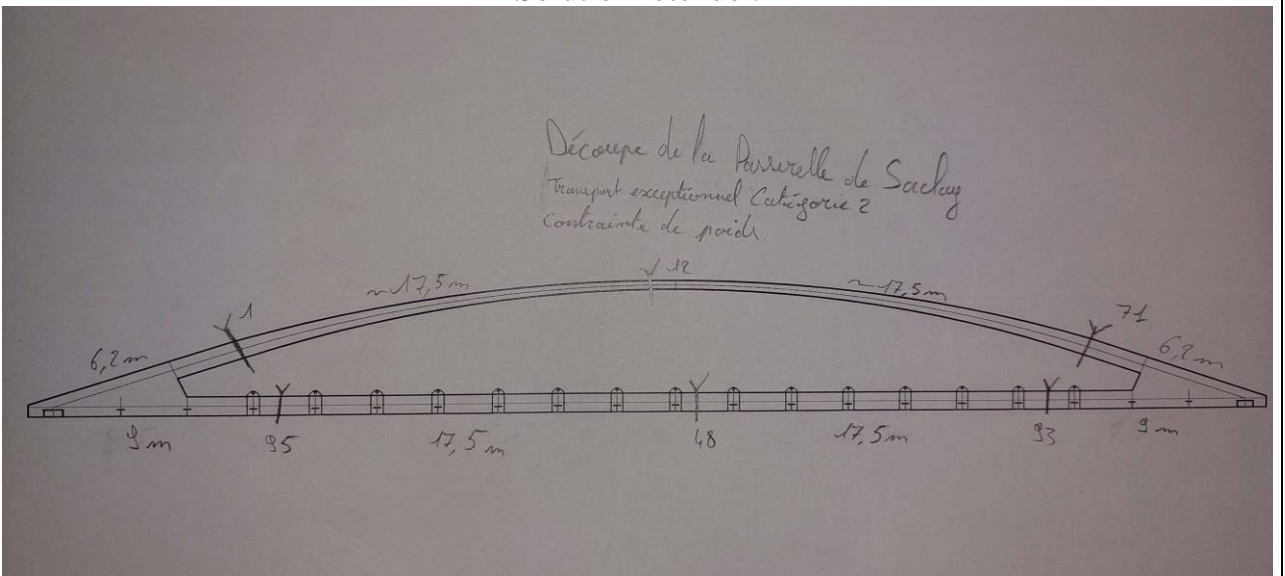 Découpe de la Passerelle de Saclay
Transport exceptionnel Catégorie 2
Contrainte de poids.
12
~17,5m
~17,5m
1
71
6,2m
6,2m
9m
95
17,5m
48
17,5m
93
9m